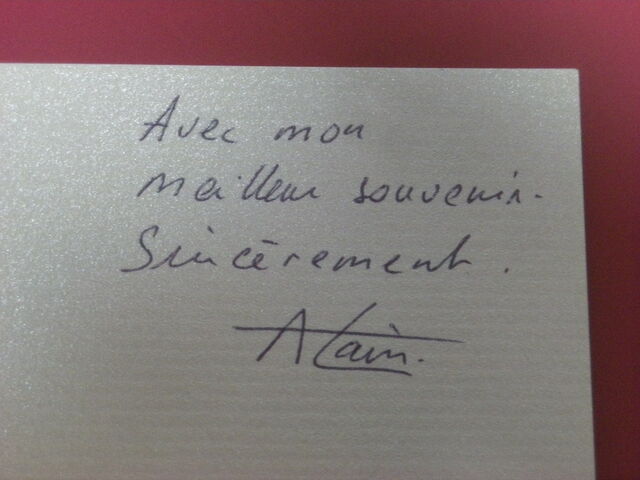 Avec mon
meilleur souvenir.
Sincèrement.
Alain.